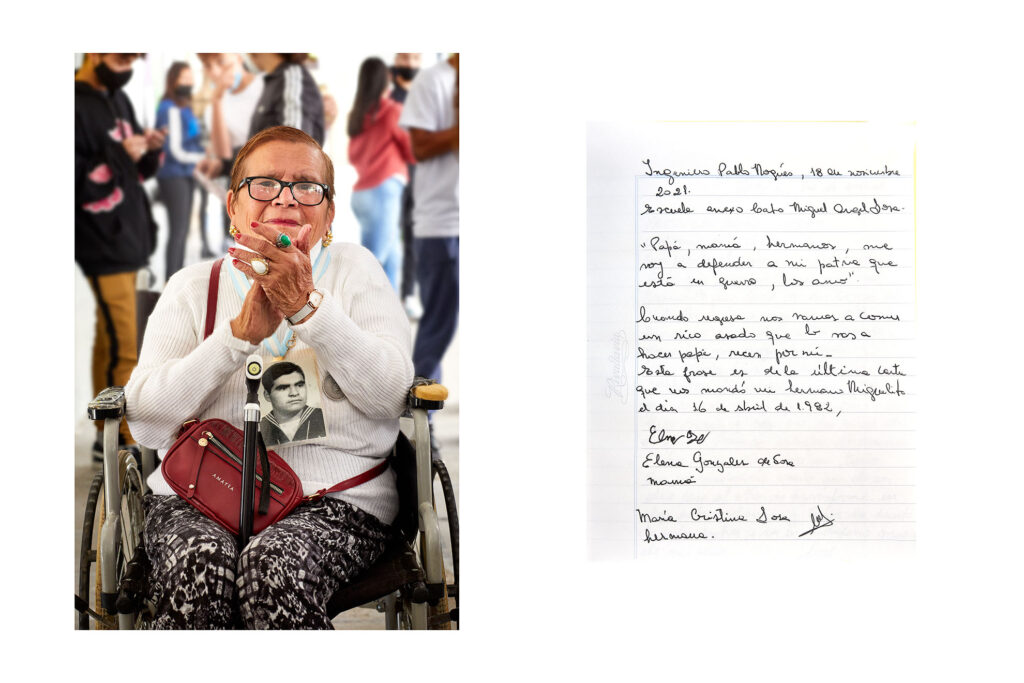 AMAYRA
Ingeniero Pablo Nogués, 18 de noviembre
2021.
Escuela anexo Cabo Miguel Angel Sosa.
"Papá, mamá, hermanos, me
voy a defender a mi patria que
está en guerra, los amo".
Cuando regrese nos vamos a comer
un rico asado que lo vas a
hacer papá, recen por mí_
Esta frase es de la última carta
que nos mandó mi hermano Miguelito
el dia 16 de abril de 1982,
Elena Gonzales de Sosa
mamá
María Cristina Sosa
hermana.